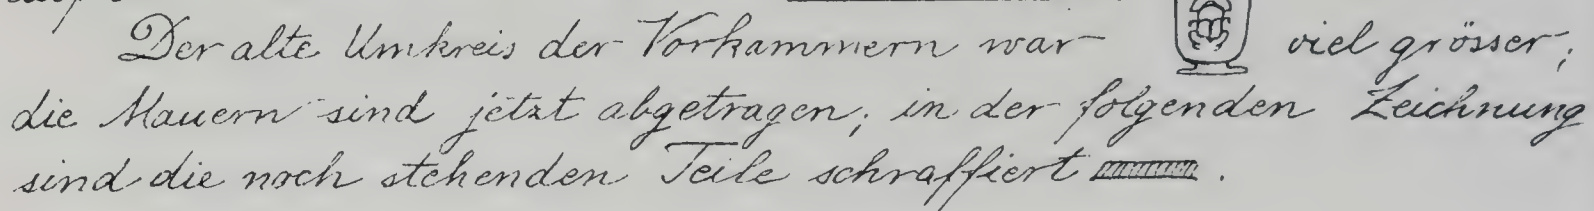 Der alte Umkreis der Vorkammern war viel grösser;
die Mauern sind jetzt abgetragen; in der folgenden Zeichnung
sind die noch stehenden Teile schraffiert .